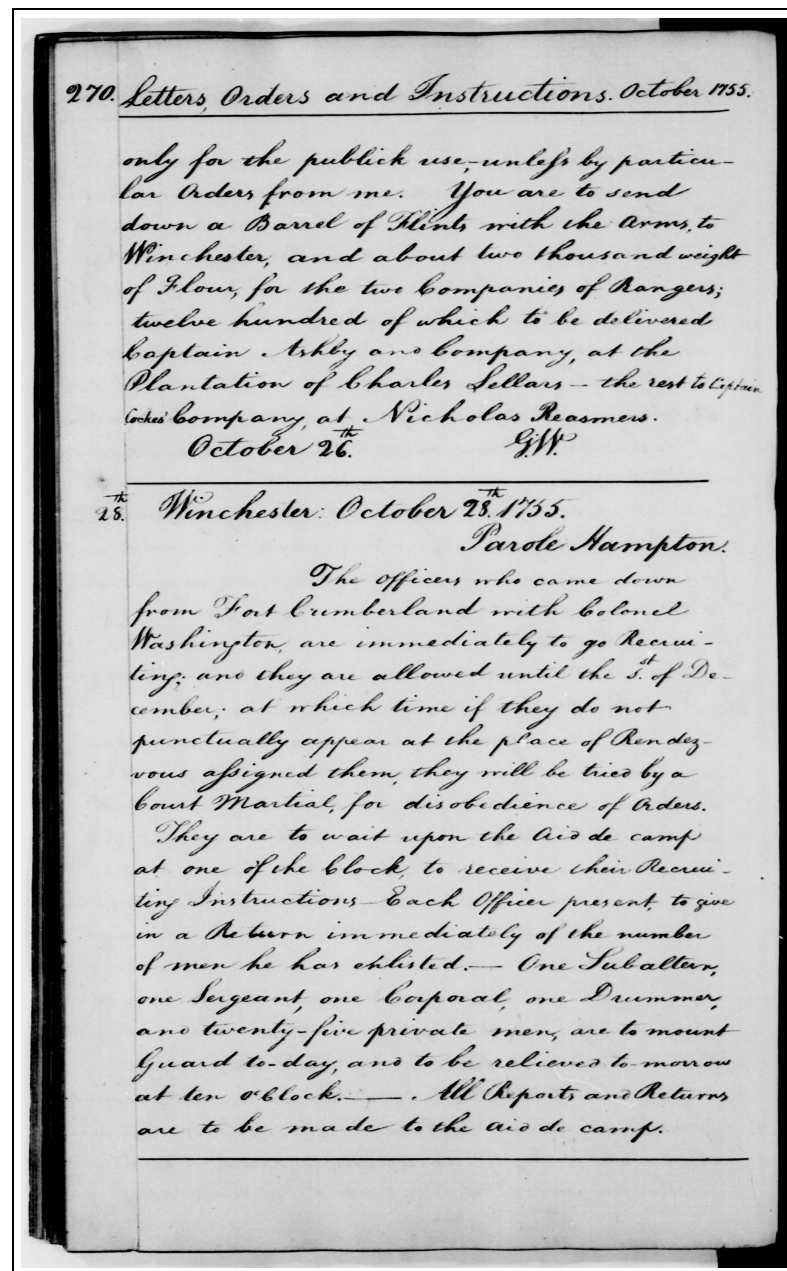 270. Letters, Orders and Instructions. October 1755.
only for the publick use,-unless by particu-
lar Orders from me. You are to send
down a Barrel of Flints with the Arms, to
Winchester, and about two thousand weight
of Flour, for the two Companies of Rangers;
twelve hundred of which to be delivered
Captain Ashby and Company, at the
Plantation of Charles Sellars - the rest to Captain
Cockes' Company, at Nicholas Reasmers.
October 26.th G.W.
28.th Winchester: October 28.th 1755.
Parole Hampton.
The officers who came down
from Fort Cumberland with Colonel
Washington, are immediately to go Recrui-
ting; and they are allowed until the 1.st of De-
cember; at which time if they do not
punctually appear at the place of Rendez-
vous assigned them, they will be tried by a
Court Martial, for disobedience of Orders.
They are to wait upon the Aid de camp
at one of the Clock, to receive their Recrui-
ting Instructions-Each Officer present, to give
in a Return immediately of the number
of men he has enlisted.— One Subaltern,
one Sergeant, one Corporal, one Drummer,
and twenty-five private men, are to mount
Guard to-day, and to be relieved to-morrow
at ten o'Clock.——. All Reports and Returns
are to be made to the Aid de camp.